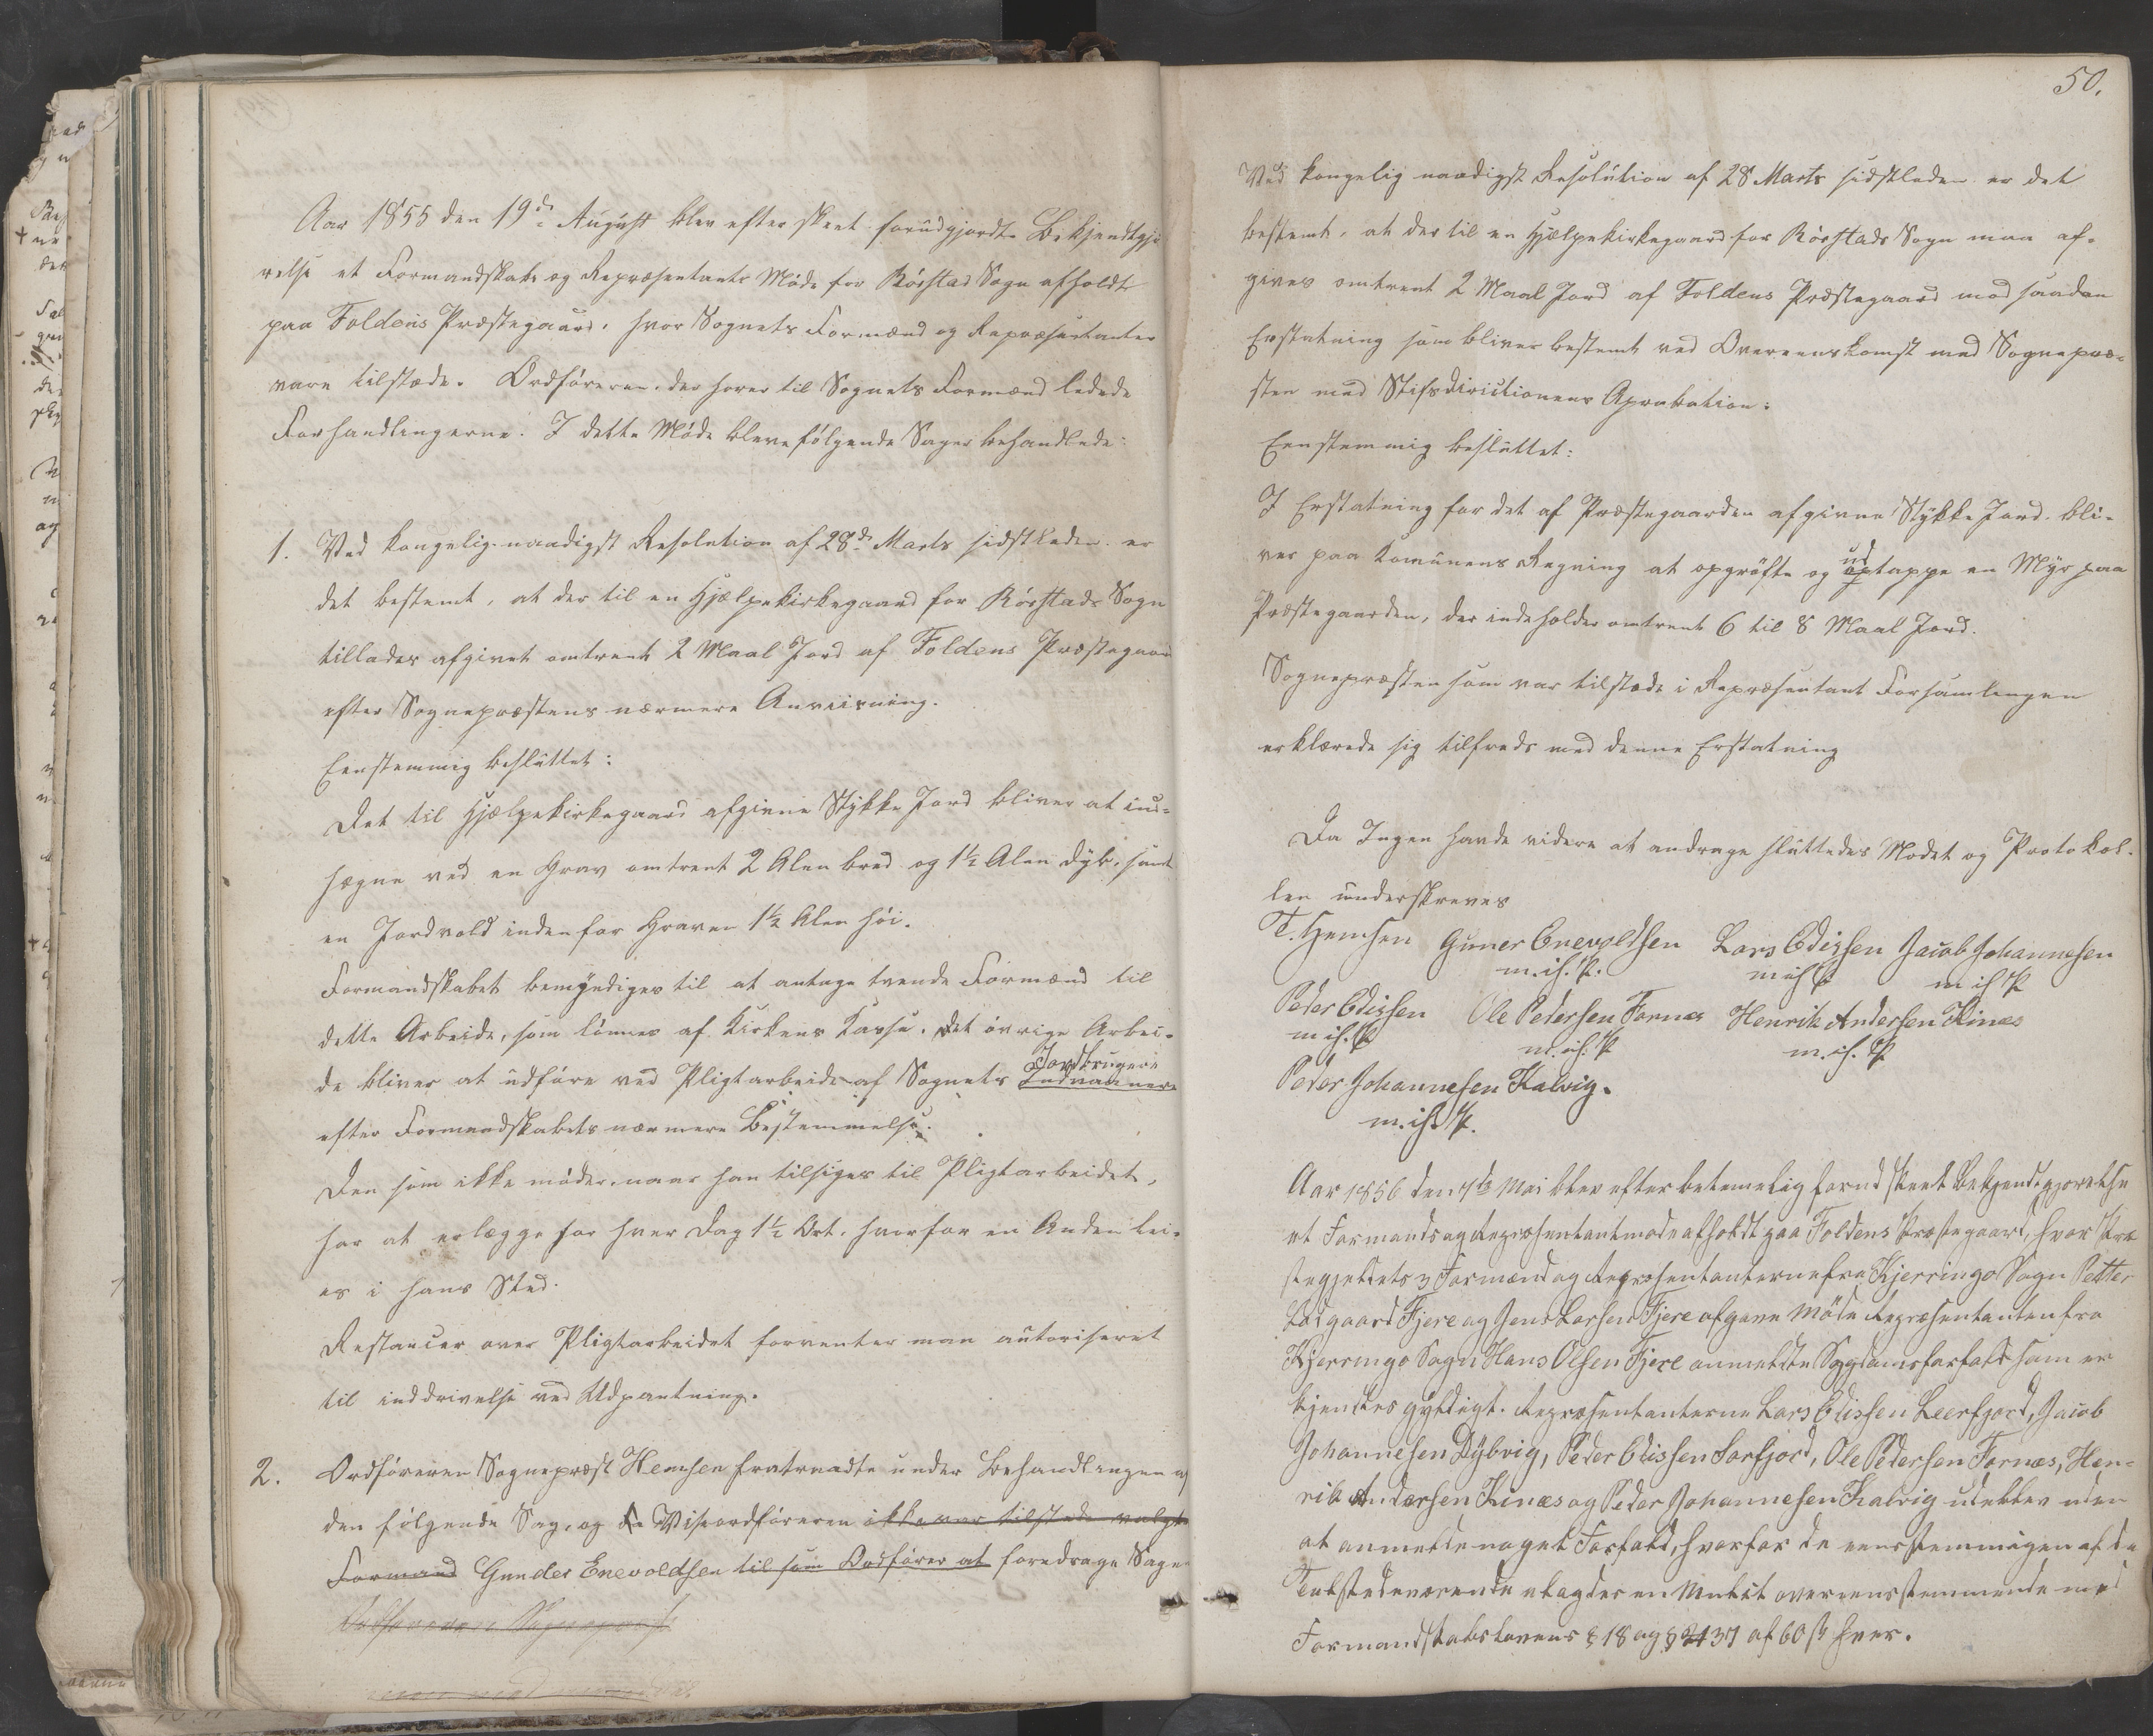 Aar 1855 den 19de August blev efter skeet forudgjordte Bekjendtgjö
relse et Formandskabs og Repræsentants Möde for Rörstad Sogn afholdt
paa Foldens Præstegaard, hvor Sognets Formænd og Repræsentanter
vare tilstæde. Ordföreren, der hører til Sognets Formænd ledede
Forhandlingerne. I dette Möde bleve fölgende Sager behandlede:
1. Ved kongelig naadigst Resolution af 28de Marts sidstleden er
det bestemt, at der til en Hjælpekirkegaard for Rörstads Sogn
tillades afgivet omtrent 2 Maal Jord af Foldens Præstegaard
efter Sognepræstens nærmere Anviisning.
Eenstemmig besluttet:
Det til Hjælpekirkegaard afgivne Stykke Jord bliver at ind-
hægne ved en Grav omtrent 2 Alen bred og 1½ Alen dyb, samt
en Jordvold indenfor Graven 1½ Alen höi.
Formandskabet bemyndiges til at antage tvende Formænd til
dette Arbeide, som lönnes af Kirkens Kasse. Det övrige Arbei-
Jordbrugere
de bliver at udföre ved Pligtarbeide af Sognets Indvaanere
efter Formandskabets nærmere Bestemmelse.
Den som ikke möder, naar han tilsiges til Pligtarbeidet,
har at erlægge for hver Dag 1½ Ort, hvorfor en Anden lei-
es i hans Sted.
Restancer over Pligtarbeidet forventer man autoriseret
til inddrivelse ved Udpantning.
2. Ordföreren Sognepræst Hemsen fratraadte under Behandlingen af
den fölgende Sag, og da Viseordföreren ikke var tilstede valgte
Formænd Gunder Enevoldsen til som Ordförer at foredrage Sagen
50.
Ved kongelig naadigst Resolution af 28 Marts sidstleden er det
bestemt, at der til en Hjælpekirkegaard for Rörstads Sogn maa af-
gives omtrent 2 Maal Jord af Foldens Præstegaard mod saadan
Erstatning som bliver bestemt ved Overeenskomst med Sognepræ-
sten med Stifsdirectionens Aprobation:
Eenstemmig besluttet:
I Erstatning for det af Præstegaarden afgivne Stykke Jord bli-
ud
ver paa Komunens Regning at opgröfte og optappe en Myr paa
Præstegaarden, der indeholder omtrent 6 til 8 Maal Jord.
Sognepræsten som var tilstæde i Repræsentant Forsamlingen
erklærede sig tilfreds med denne Erstatning
Da Ingen havde videre at andrage sluttedes Mödet og Protokol-
len underskreves
T. Hemsen Guner Enevoldsen Lars Edissen Jacob Johannesen
m.ih.P. m ih P m ih P
Peder Edissen Ole Pedersen Fornæs Henrik Andersen Kines
m ih. P m. ih. P m. ih. P
Peder Johannesen Kalvig.
m. ih. P.
Aar 1856 den 7de Mai blev efter betimelig forud skeet Bekjendtgjørelse
et Formands og Repræsentantmøde afholdt paa Foldens Præstegaard, hvor Præ
stegjeldets 3 Formænd og Repræsentanterne fra Kjerringø Sogn Petter
Ødegaard Fjere og Jens Larsen Fjere afgave Møde Repræsentanten fra
Kjerringø Sogn Hans Olsen Fjere anmeldte Sygdomsforfald som er
kjendtes gyldigt. Repræsentanterne Lars Edissen Leerfjord, Jacob
Johannesen Dybvig, Peder Edissen Sørfjord, Ole Pedersen Fornæs, Hen-
rik Andersen Kinæs og Peder Johannesen Kalvig udeblev uden
at anmelde noget Forfald, hvorfor de eenstemmigen af de
Tilstedeværende ilagdes en Mulct overeensstemmende med
Formandskabslovens § 18 og § 37 af 60 s hver.